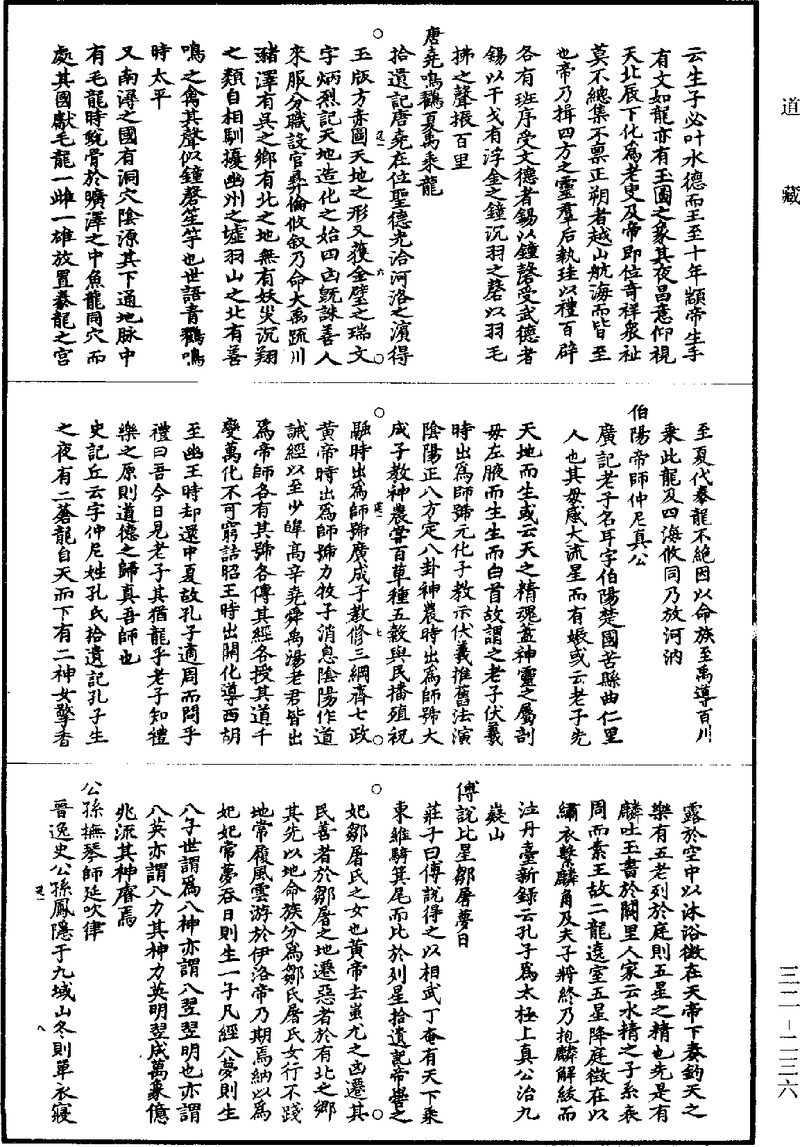 道藏
云生子必叶水德而王至十年顓帝生手
有文如龍亦有玉圖之象其夜昌意仰視
天北辰下化為老叟及帝即位奇祥衆祉
莫不總集不稟正朔者越山航海而皆至
也帝乃揖四方之靈羣后執珪以禮百辟
各有班序受文德者錫以鐘磬受武德者
錫以干戈有浮金之鐘沉羽之磬以羽毛
拂之聲振百里
唐堯鳴鸛夏禹乘龍
拾遺記唐堯在位聖德光洽河洛之濱得
玉版方尺圖天地之形又獲金璧之瑞文
字炳烈記天地造化之始四凶既誅善人
來服分職設官彛倫攸叙乃命大禹疏川
瀦澤有吳之鄉有北之地無有妖災沉翔
之類自相馴擾幽州之墟羽山之北有善
鳴之禽其聲似鐘磬笙竽也世語青鸛鳴
時太平
又南潯之國有洞穴陰源其下通地脉中
有毛龍時蛻骨於曠澤之中魚龍同穴而
處其國獻毛龍一雌一雄放置豢龍之宮
至夏代豢龍不絕因以命族至禹導百川
乘此龍及四海攸同乃放河汭
伯陽帝師仲尼真公
廣記老子名耳字伯陽楚國苦縣曲仁里
人也其母感大流星而有娠或云老子先
天地而生或云天之精魂蓋神靈之屬剖
母左腋而生生而白首故謂之老子伏羲
時出為師號元化子教示伏羲推舊法演
陰陽正八方定八卦神農時出為師號大
成子教神農嘗百草種五穀與民播殖祝
融時出為師號廣成子教修三綱齊七政
黃帝時出為師號力牧子消息陰陽作道
誡經以至少皡高辛堯舜禹湯老君皆出
為帝師各有其號各傳其經各授其道千
變萬化不可窮詰昭王時出關化導西胡
至幽王時却還中夏故孔子適周而問乎
禮曰吾今日見老子其猶龍乎老子知禮
樂之原則道德之歸真吾師也
史記丘云字仲尼姓孔氏拾遺記孔子生
之夜有二蒼龍自天而下有二神女擎香
露於空中以沐浴徵在天帝下奏鈞天之
樂有五老列於庭則五星之精也先是有
麟吐玉書於闕里人家云水精之子系衰
周而素王故二龍遶室五星降庭徵在以
繡衣繫麟角及夫子將終乃抱麟解紱而
泣丹臺新録云孔子為太極上真公治九
嶷山
傅說比星鄒屠夢日
莊子曰傅說得之以相武丁奄有天下乘
東維騎箕尾而比於列星拾遺記帝嚳之
妃鄒屠氏之女也黃帝去蚩尤之凶遷其
民善者於鄒屠之地遷惡者於有北之鄉
其先以地命族分為鄒氏屠氏女行不踐
地常履風雲游於伊洛帝乃期焉納以為
妃妃常夢吞日則生一子凡經八夢則生
八子世謂為八神亦謂八翌翌明也亦謂
八英亦謂八力其神力英明翌成萬象億
兆流其神睿焉
公孫撫琴師延吹律
晉逸史公孫鳳隱于九域山冬則單衣寢
三二－二三六